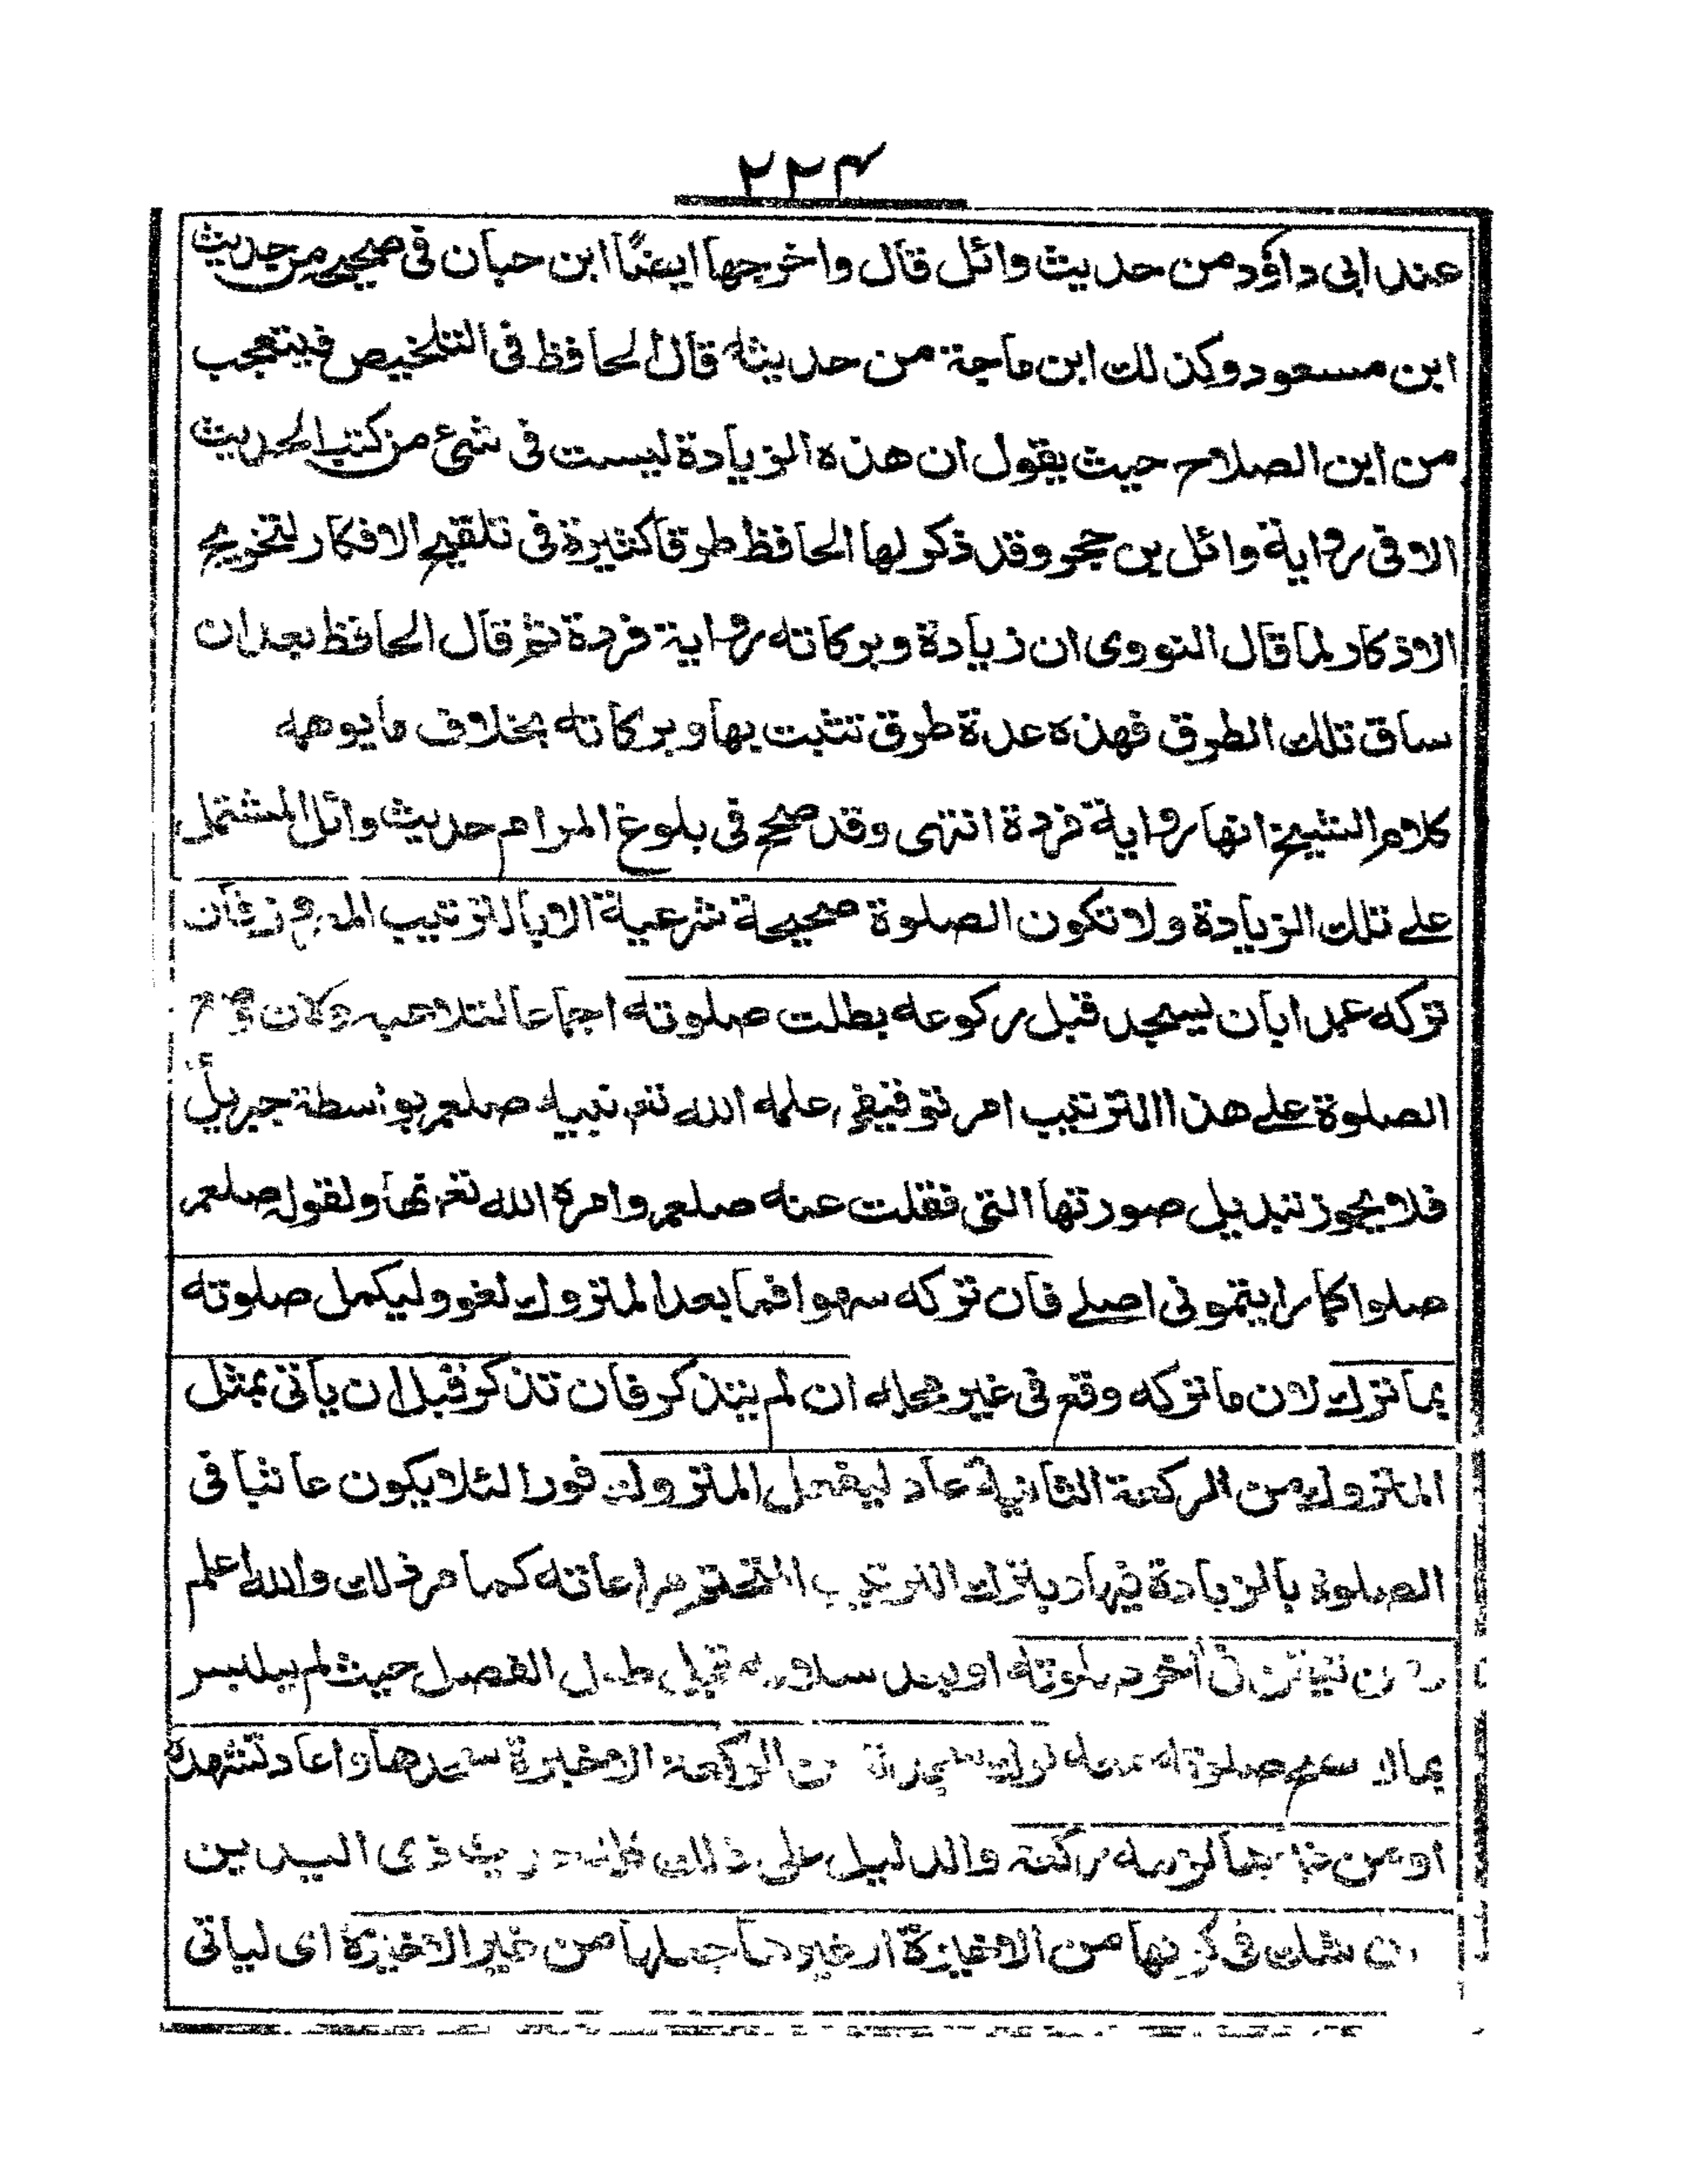 ٢٢٤
عند ابی داؤد من حدیث وائل قال واخرجها ایضًا ابن حبان فی صحیحہ من حدیث
ابن مسعود وكذلك ابن ماجة من حديثه قال الحافظ فى التلخيص فيتعجب
من ابن الصلاح حيث يقول ان هذه الزيادة ليست فى شئ من كتب الحديث
الا فى رواية وائل بن حجر وقد ذكر لها الحافظ طرقا كثيرة فى تلقيح الافكار لتخريج
الاذكار لما قال النووى ان زيادة وبركاته رواية فردة ثم قال الحافظ بعد ان
ساق تلك الطرق فهذه عدة طرق تثبت بها وبركاته بخلاف ما يوهمه
كلام الشيخ انها رواية فردة انتهى وقد صحح فى بلوغ المرام حديث وائل المشتمل
على تلك الزيادة ولا تكون الصلوة صحيحة شرعية الا بالترتيب فان
تركه عمدا بان يسجد قبل ركوعه بطلت صلوته اجماعا لتلاعبه ولان
الصلوة على هذا الترتيب امر توقيفى علمه الله تعم نبيه صلعم بواسطة جبريل
فلا يجوز تبديل صورتها التى نقلت عنه صلعم وامره الله تعم بها ولقوله صلعم
صلوا كما رايتمونى اصلى فان تركه سهوا فما بعد المتروك لغو وليكمل صلوته
بما ترك لان ما تركه وقع فى غير محله ان لم يتذكر فان تذكر قبل ان ياتى بمثل
المتروك من الركعة الثانية عاد ليفعل المتروك فورا لئلا يكون عابثا فى
الصلوة بالزيادة فيها وبترك الترتيب مراعاته كما مر ذلك والله اعلم
فى آخر صلوته او بعد سلامه قبل طول الفصل حيث لم يتلبس
بما لا صلوته ترك سجدة من الركعة الاخيرة سجدها واعاد تشهده
او من لزمه ركعة والدليل على ذلك حديث ذى اليدين
ان شك فى كونها من الاخيرة او غيرها جعلها من غير الاخيرة اى لياتى